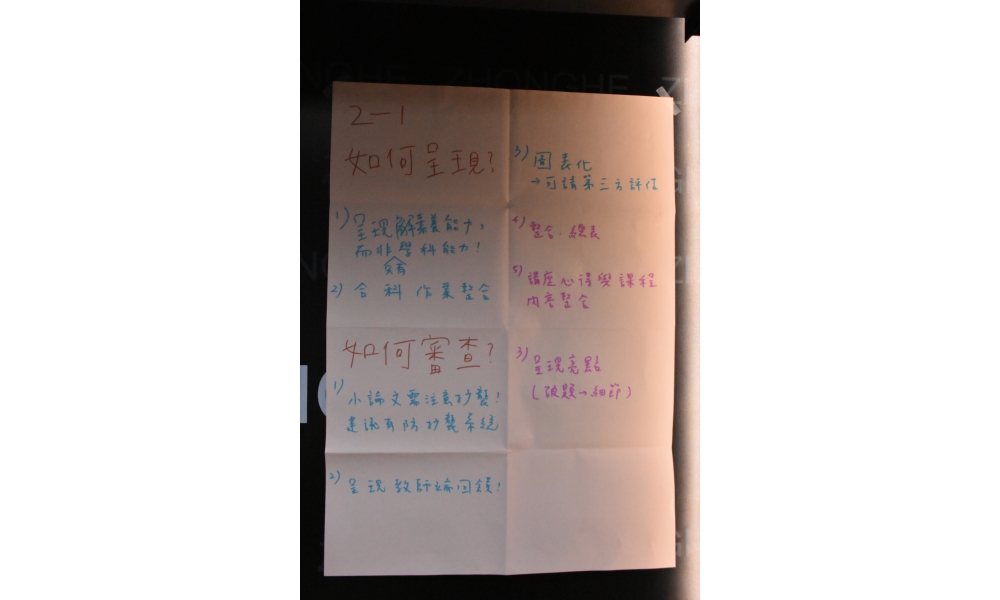 ZHONGHE
2-1
如何呈現?
1) 呈現解素養能力,
而非學科能力!
2) 合科作業整合
3) 圖表化
→可請第三方評估
4) 整合.總表
5) 講座心得與課程
內容整合
如何審查?
1) 小論文需注意抄襲!
建議有防抄襲系統
2) 呈現教師端回饋!
3) 呈現亮點
(破題→細節)